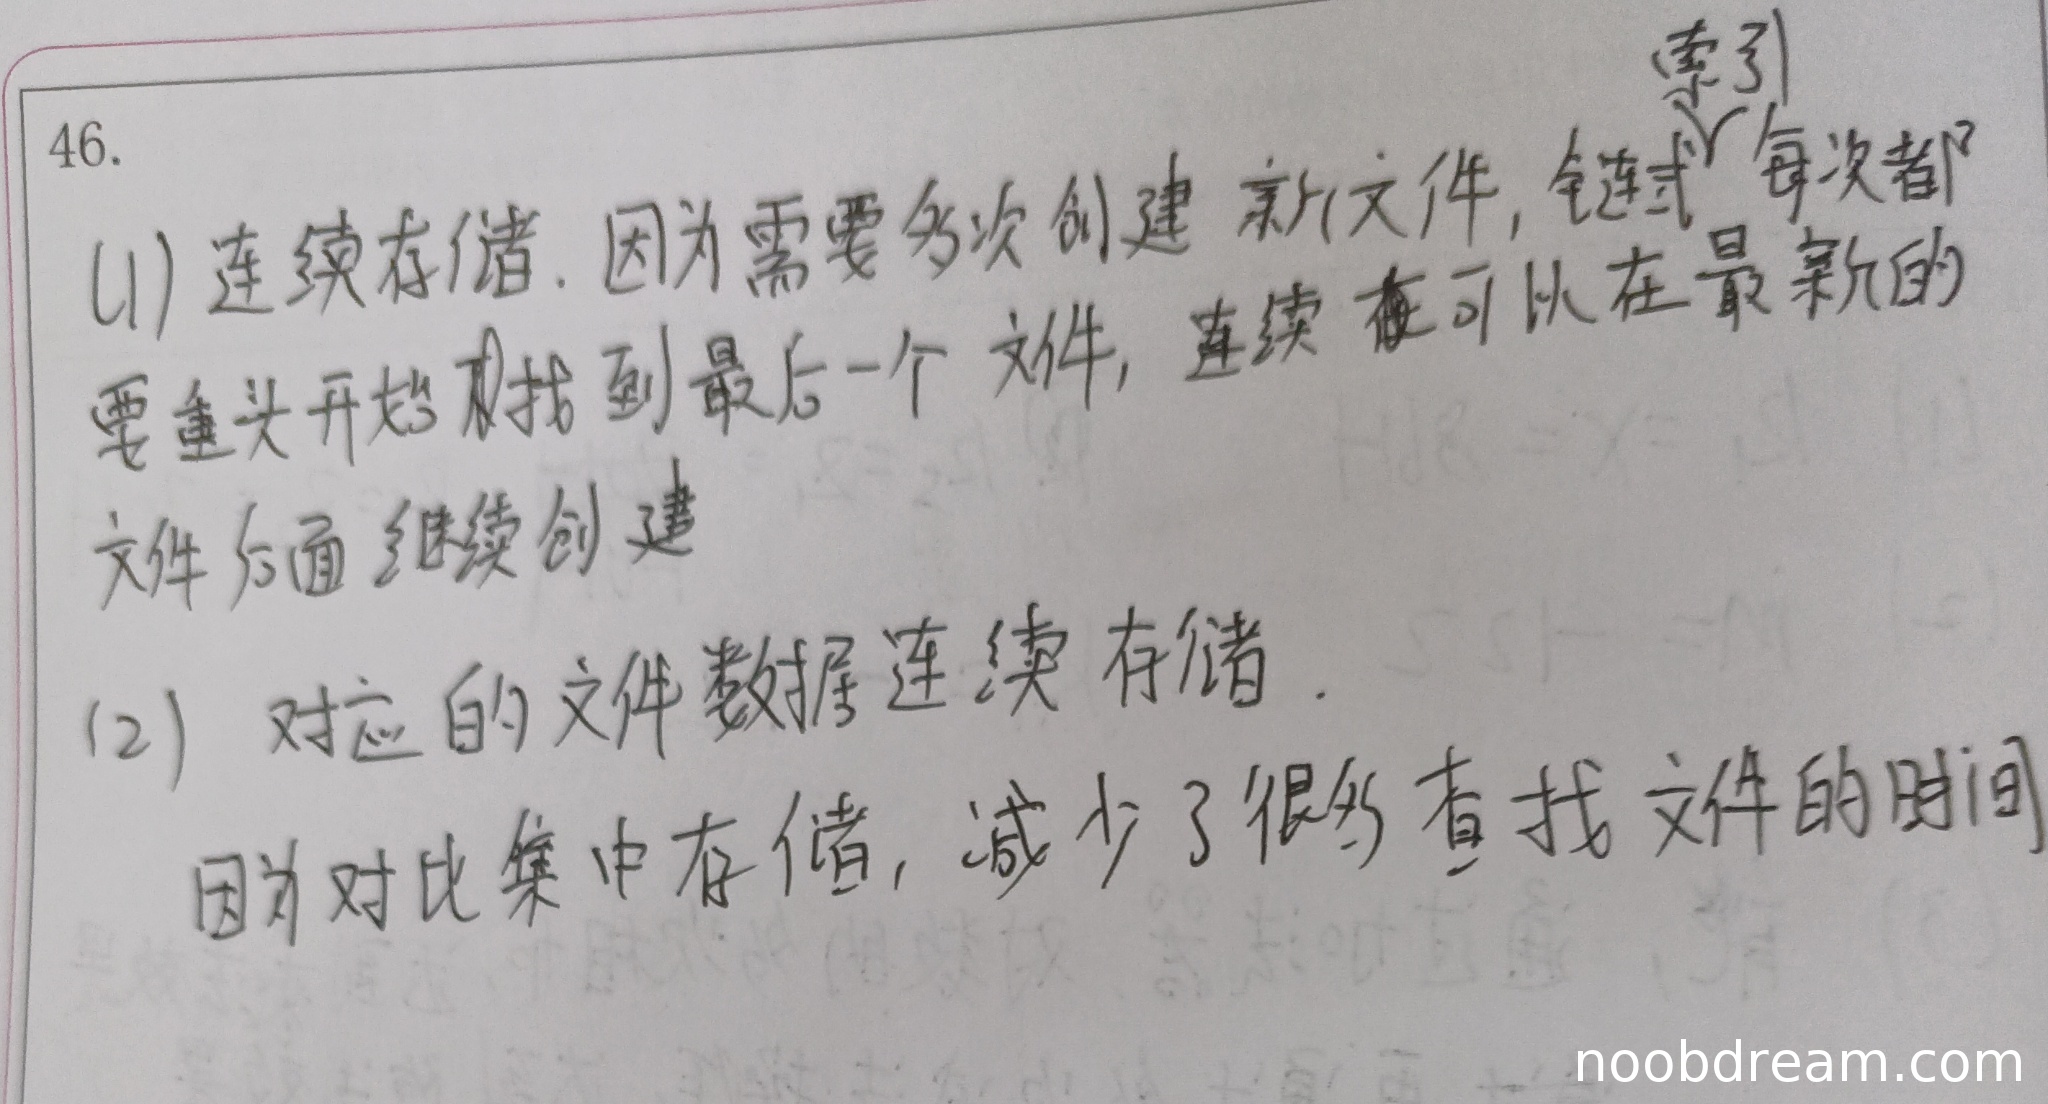 46.
索引
(1) 连续存储. 因为需要多次创建 新文件, 链式 每次都
要重头开始 找到最后一个 文件, 连续 可以在最新的
文件后面继续创建
(2) 对应的文件数据连续存储.
因为对比集中存储, 减少了很多查找文件的时间
noobdream.com